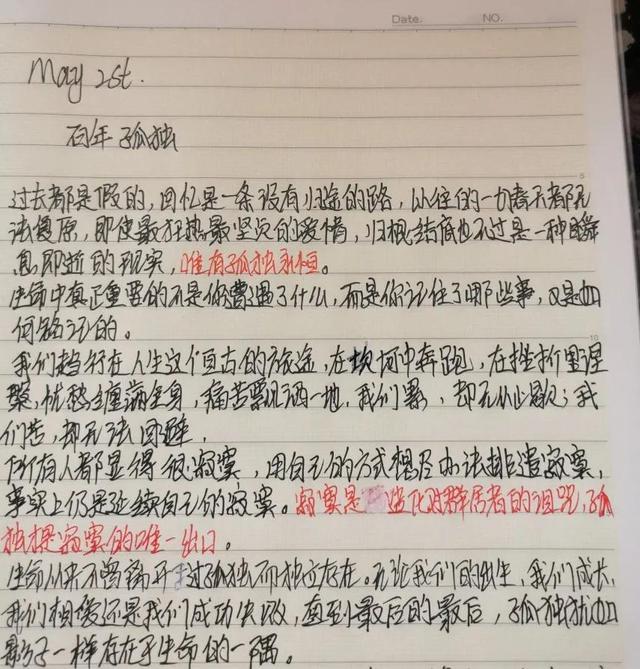 Date. NO.
May 2st.
百年孤独
过去都是假的，回忆是一条没有归途的路，以往的一切春天都无
法复原，即使最狂热最坚贞的爱情，归根结底也不过是一种瞬
息即逝的现实，唯有孤独永恒。
生命中真正重要的不是你遭遇了什么，而是你记住了哪些事，又是如
何铭记的。
我们趋行在人生这个亘古的旅途，在坎坷中奔跑，在挫折里涅
槃，忧愁缠满全身，痛苦飘洒一地，我们累，却无从止歇；我
们苦，却无法回避，
所有人都显得很寂寞，用自己的方式想尽办法排遣寂寞，
事实上仍是延续自己的寂寞。寂寞是造化对群居者的诅咒，孤
独是寂寞的唯一出口。
生命从来不曾离开过孤独而独立存在。无论我们的出生，我们成长，
我们相爱还是我们成功失败，直到最后的最后，孤独犹如
影子一样存在于生命的一隅。
5
10